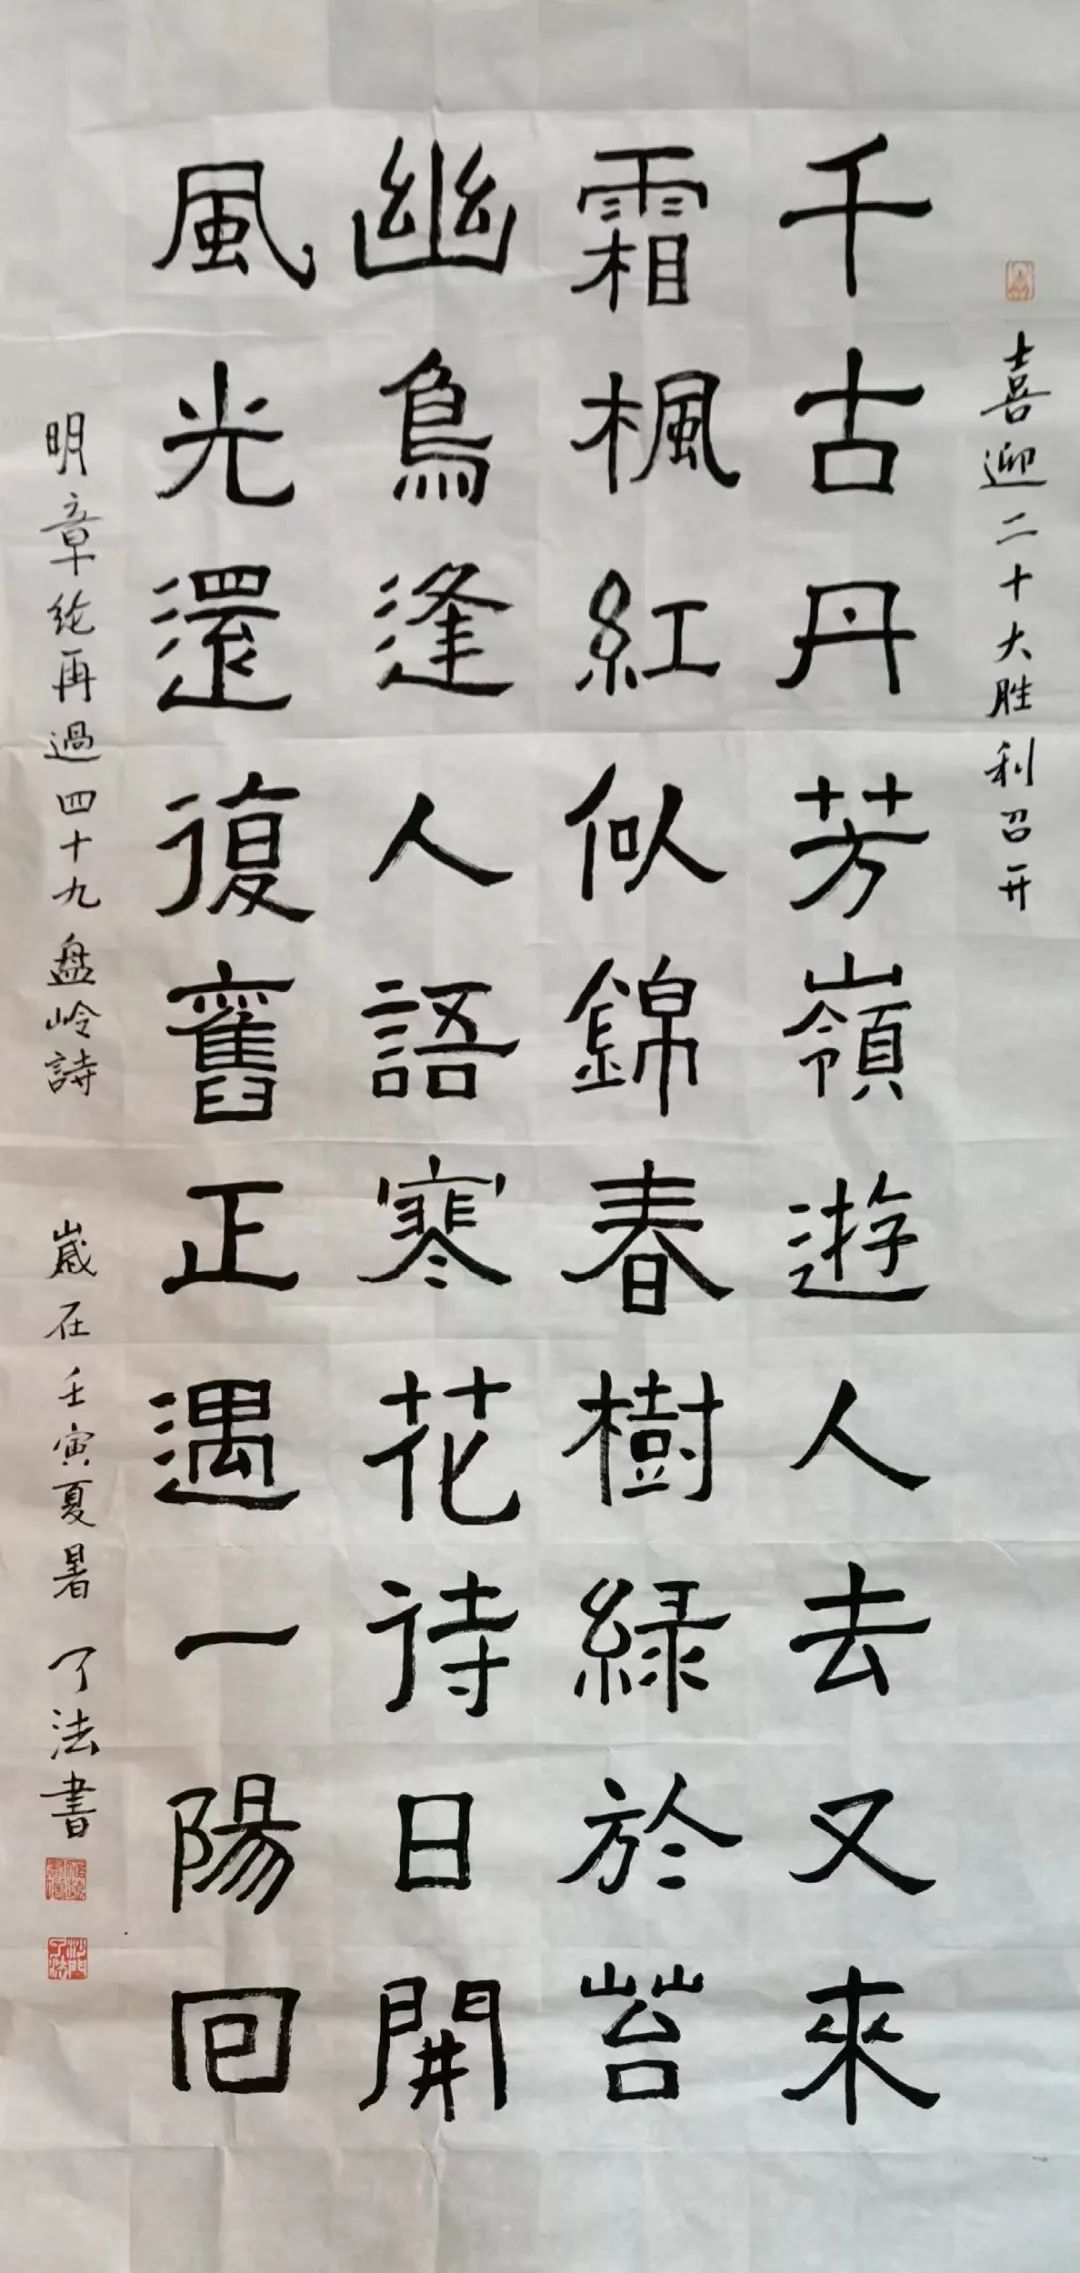 喜迎二十大胜利召开
千古丹芳嶺遊人去又來
霜楓紅似錦春樹緑於苔
幽鳥逢人語寒花待日開
風光還復舊正遇一陽回
明章纶再過四十九盘岭詩 嵗在壬寅夏暑 了法書